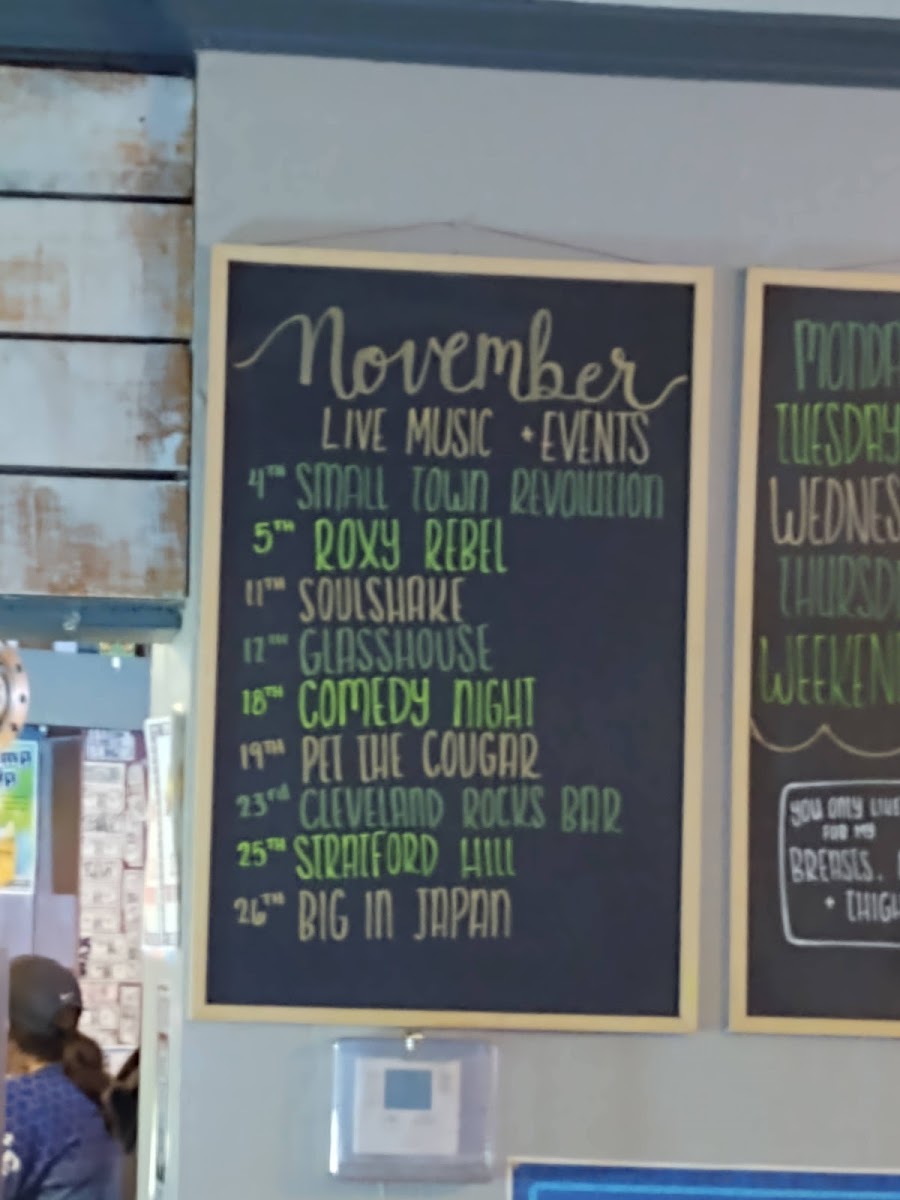 November
LIVE MUSIC + EVENTS
4TH SMALL TOWN REVOLUTION
5TH ROXY REBEL
11TH SOULSHAKE
12TH GLASSHOUSE
18TH COMEDY NIGHT
19TH PET THE COUGAR
23rd CLEVELAND ROCKS BAR
25TH STRATFORD HILL
26TH BIG IN JAPAN
MONDA
TUESDAY
WEDNES
THURSD
WEEKEN
YOU ONLY LIKE
FOR MY
BREASTS,
+ THIGH